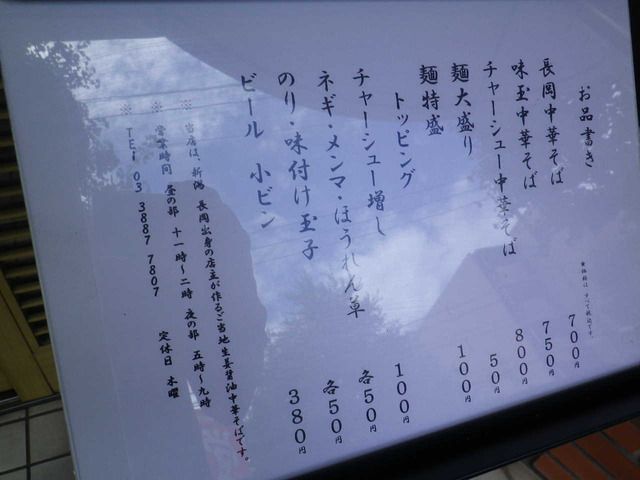 お品書き ※価格は、すべて税込です。
長岡中華そば 700円
味玉中華そば 750円
チャーシュー中華そば 800円
麺大盛り 50円
麺特盛 100円
トッピング
チャーシュー増し 100円
ネギ・メンマ・ほうれん草 各50円
のり・味付け玉子 各50円
ビール 小ビン 380円
※ 当店は、新潟 長岡出身の店主が作るご当地生姜醤油中華そばです。
※ 営業時間 昼の部 十一時〜二時 夜の部 五時〜九時 定休日 水曜
※ TEl 03 3887 7807